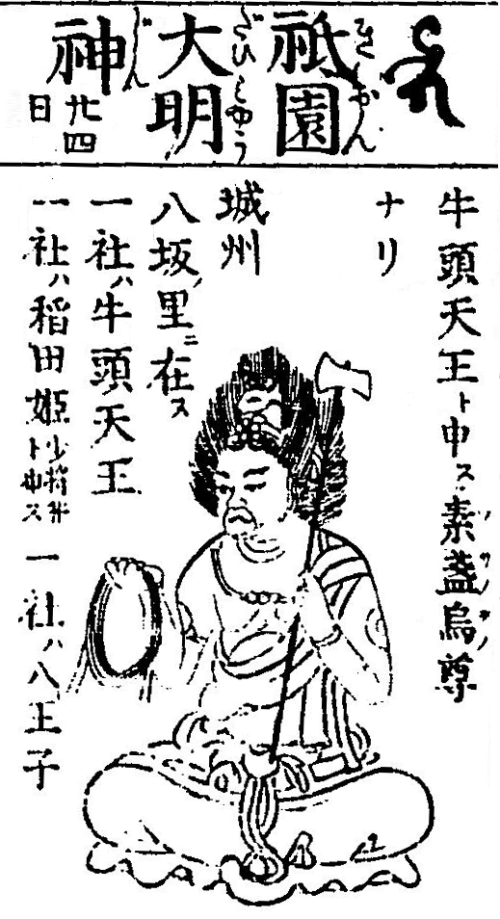 祇園
ぎおん
大明
だいみやう
神
じん
廿四
日
牛頭天王ト申ス素盞烏尊
ナリ
城州
八坂ノ里ニ在ス
一社ハ牛頭天王
一社ハ稲田姫少将井ト申ス一社ハ八王子